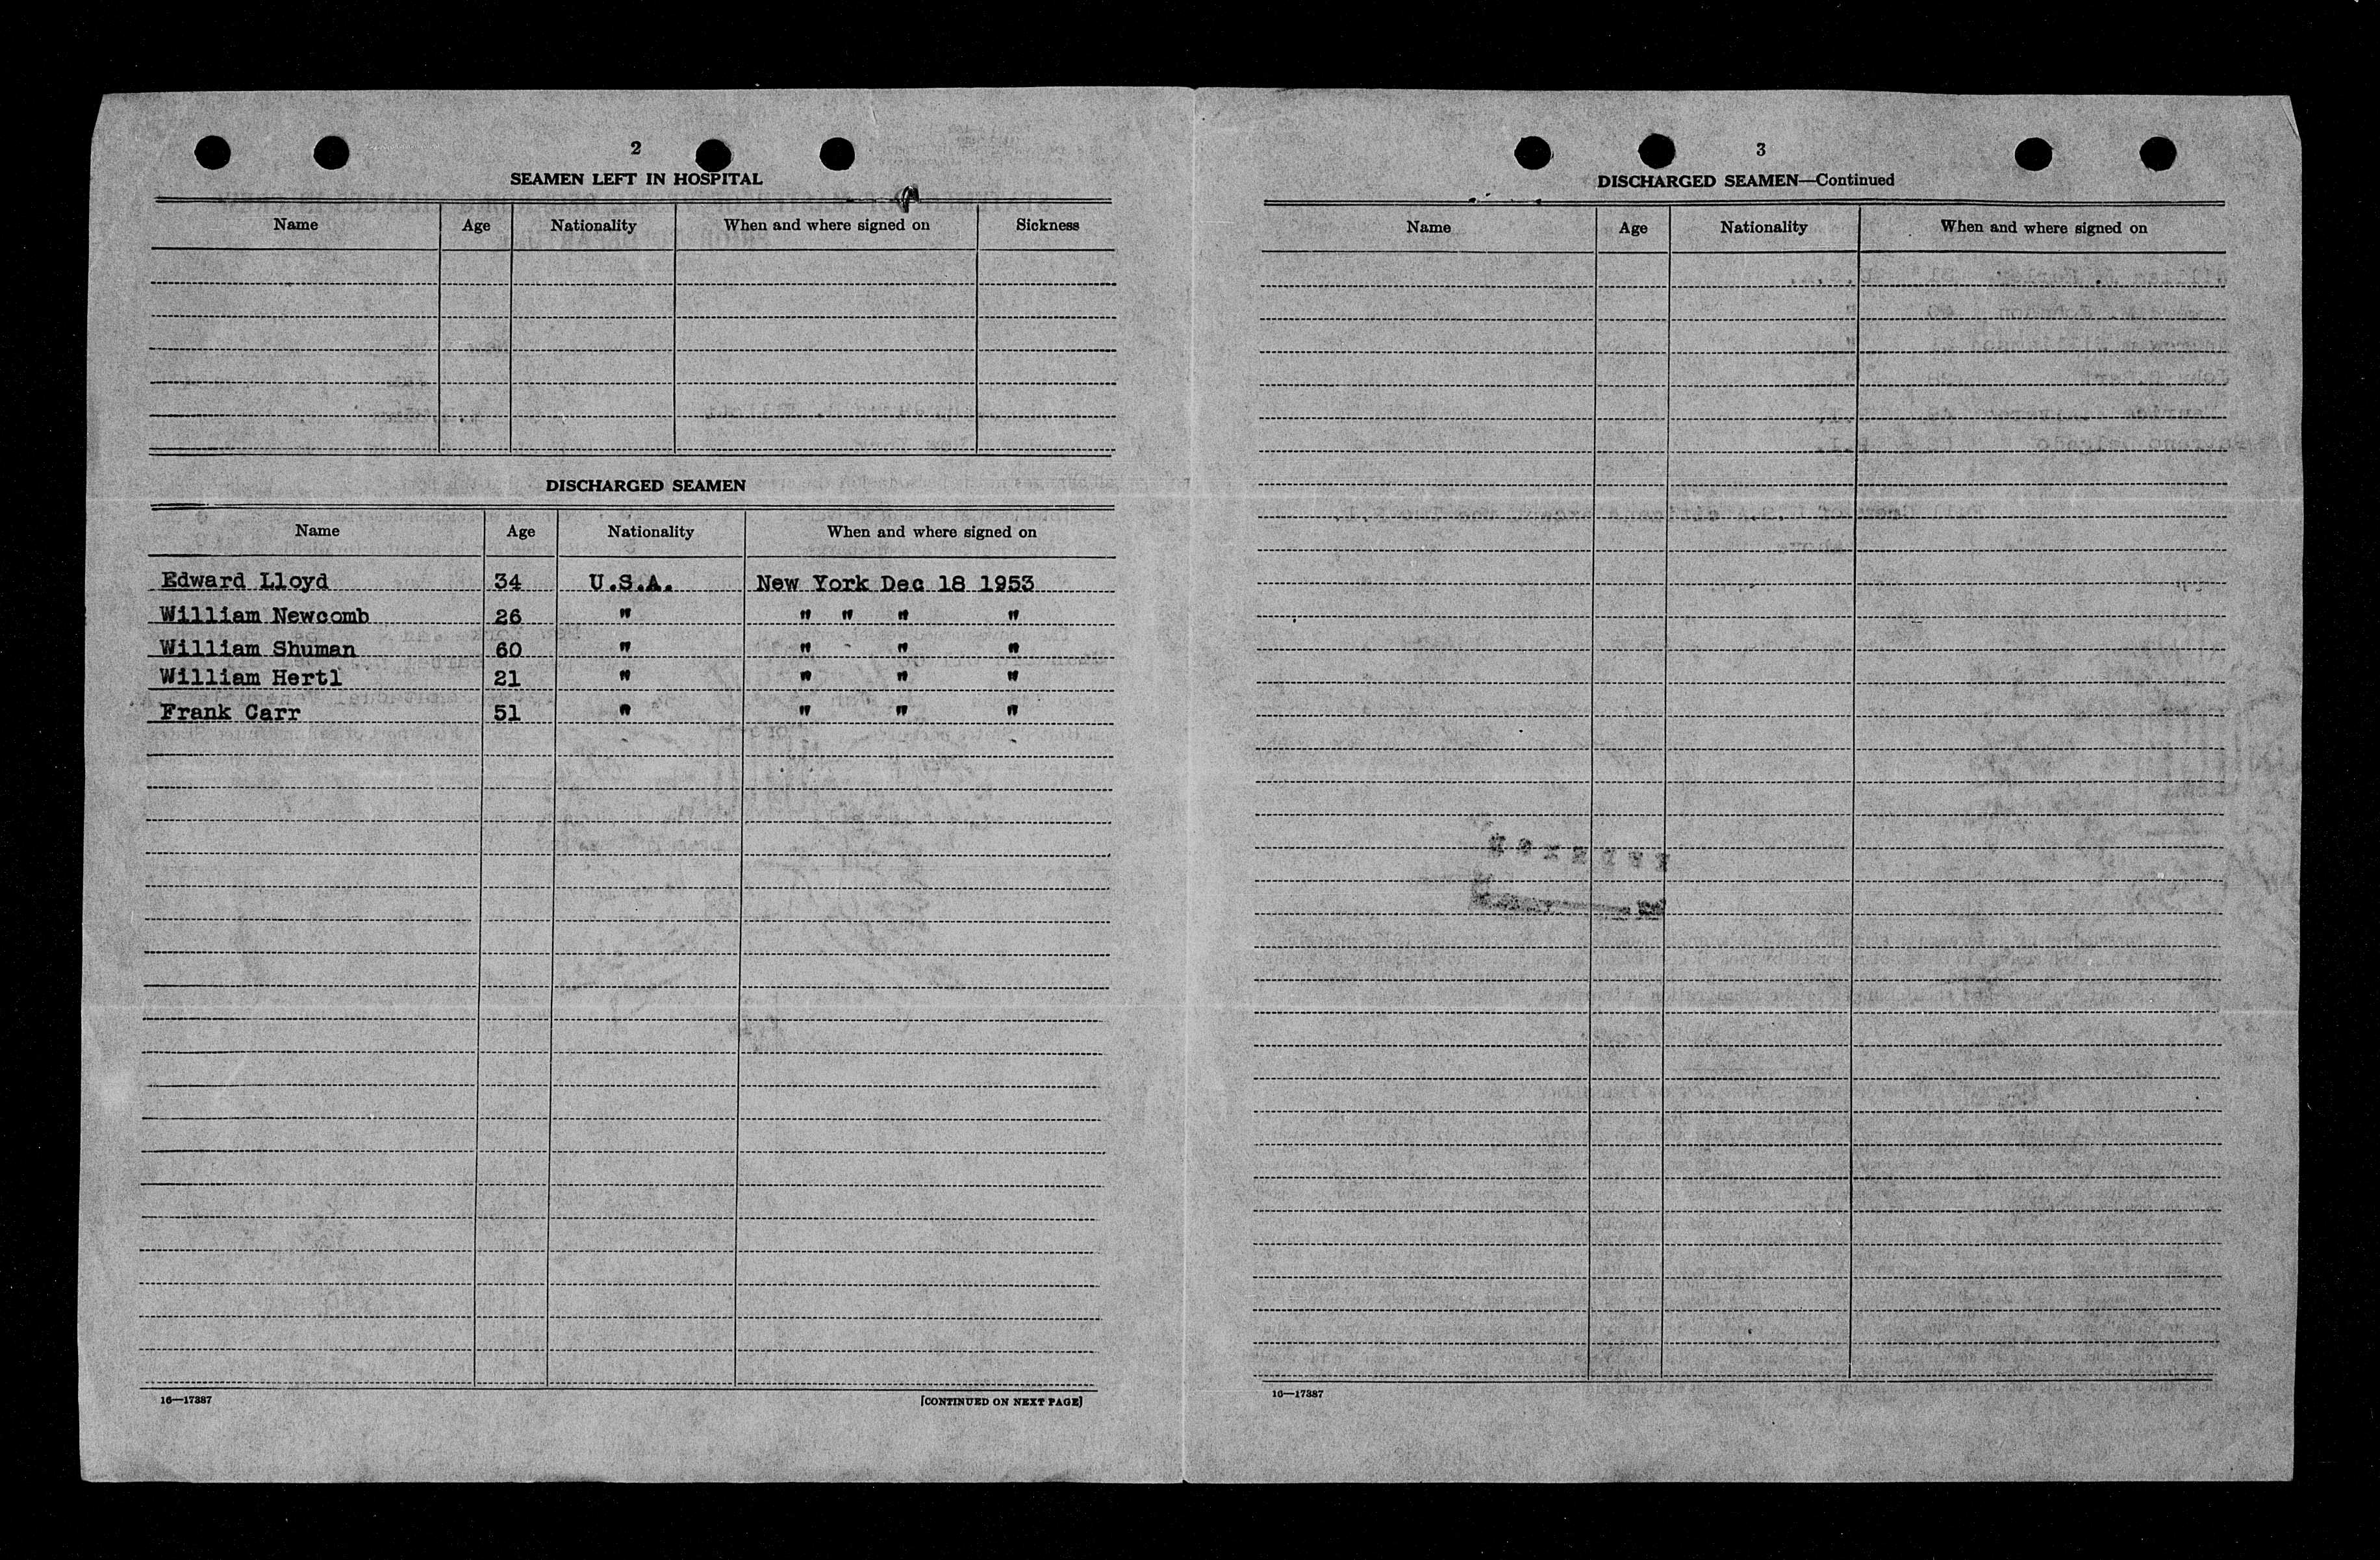 2
SEAMEN LEFT IN HOSPITAL
Name Age Nationality When and where signed on Sickness
DISCHARGED SEAMEN
Name Age Nationality When and where signed on
Edward Lloyd 34 U.S.A. New York Dec 18 1953
William Newcomb 26 " " " " "
William Shuman 60 " " " "
William Hertl 21 " " " "
Frank Carr 51 " " " "
16—17387 [CONTINUED ON NEXT PAGE]
3
DISCHARGED SEAMEN—Continued
Name Age Nationality When and where signed on
16—17387